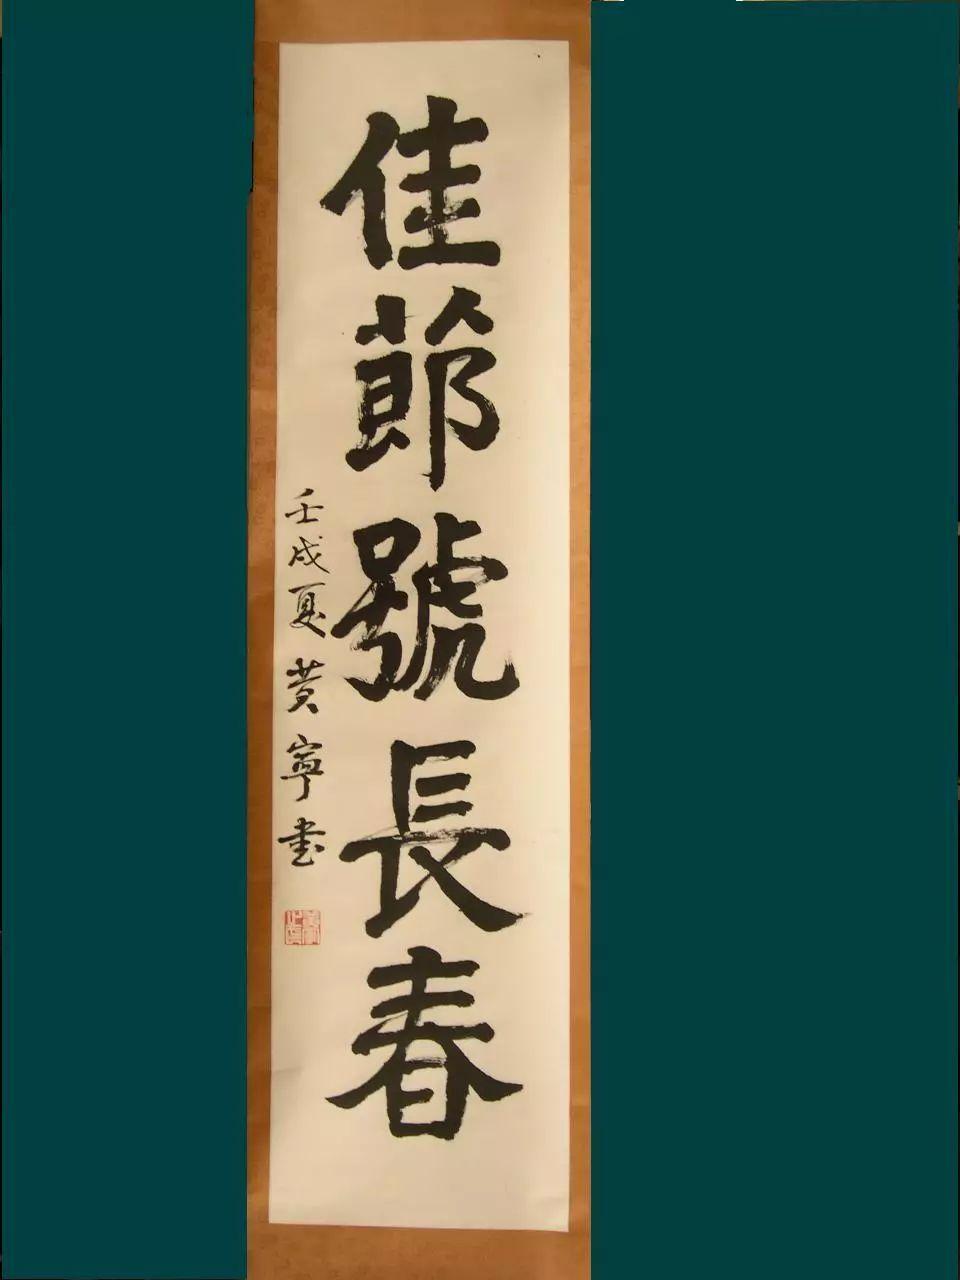 佳節號長春
壬戌夏黄寧书